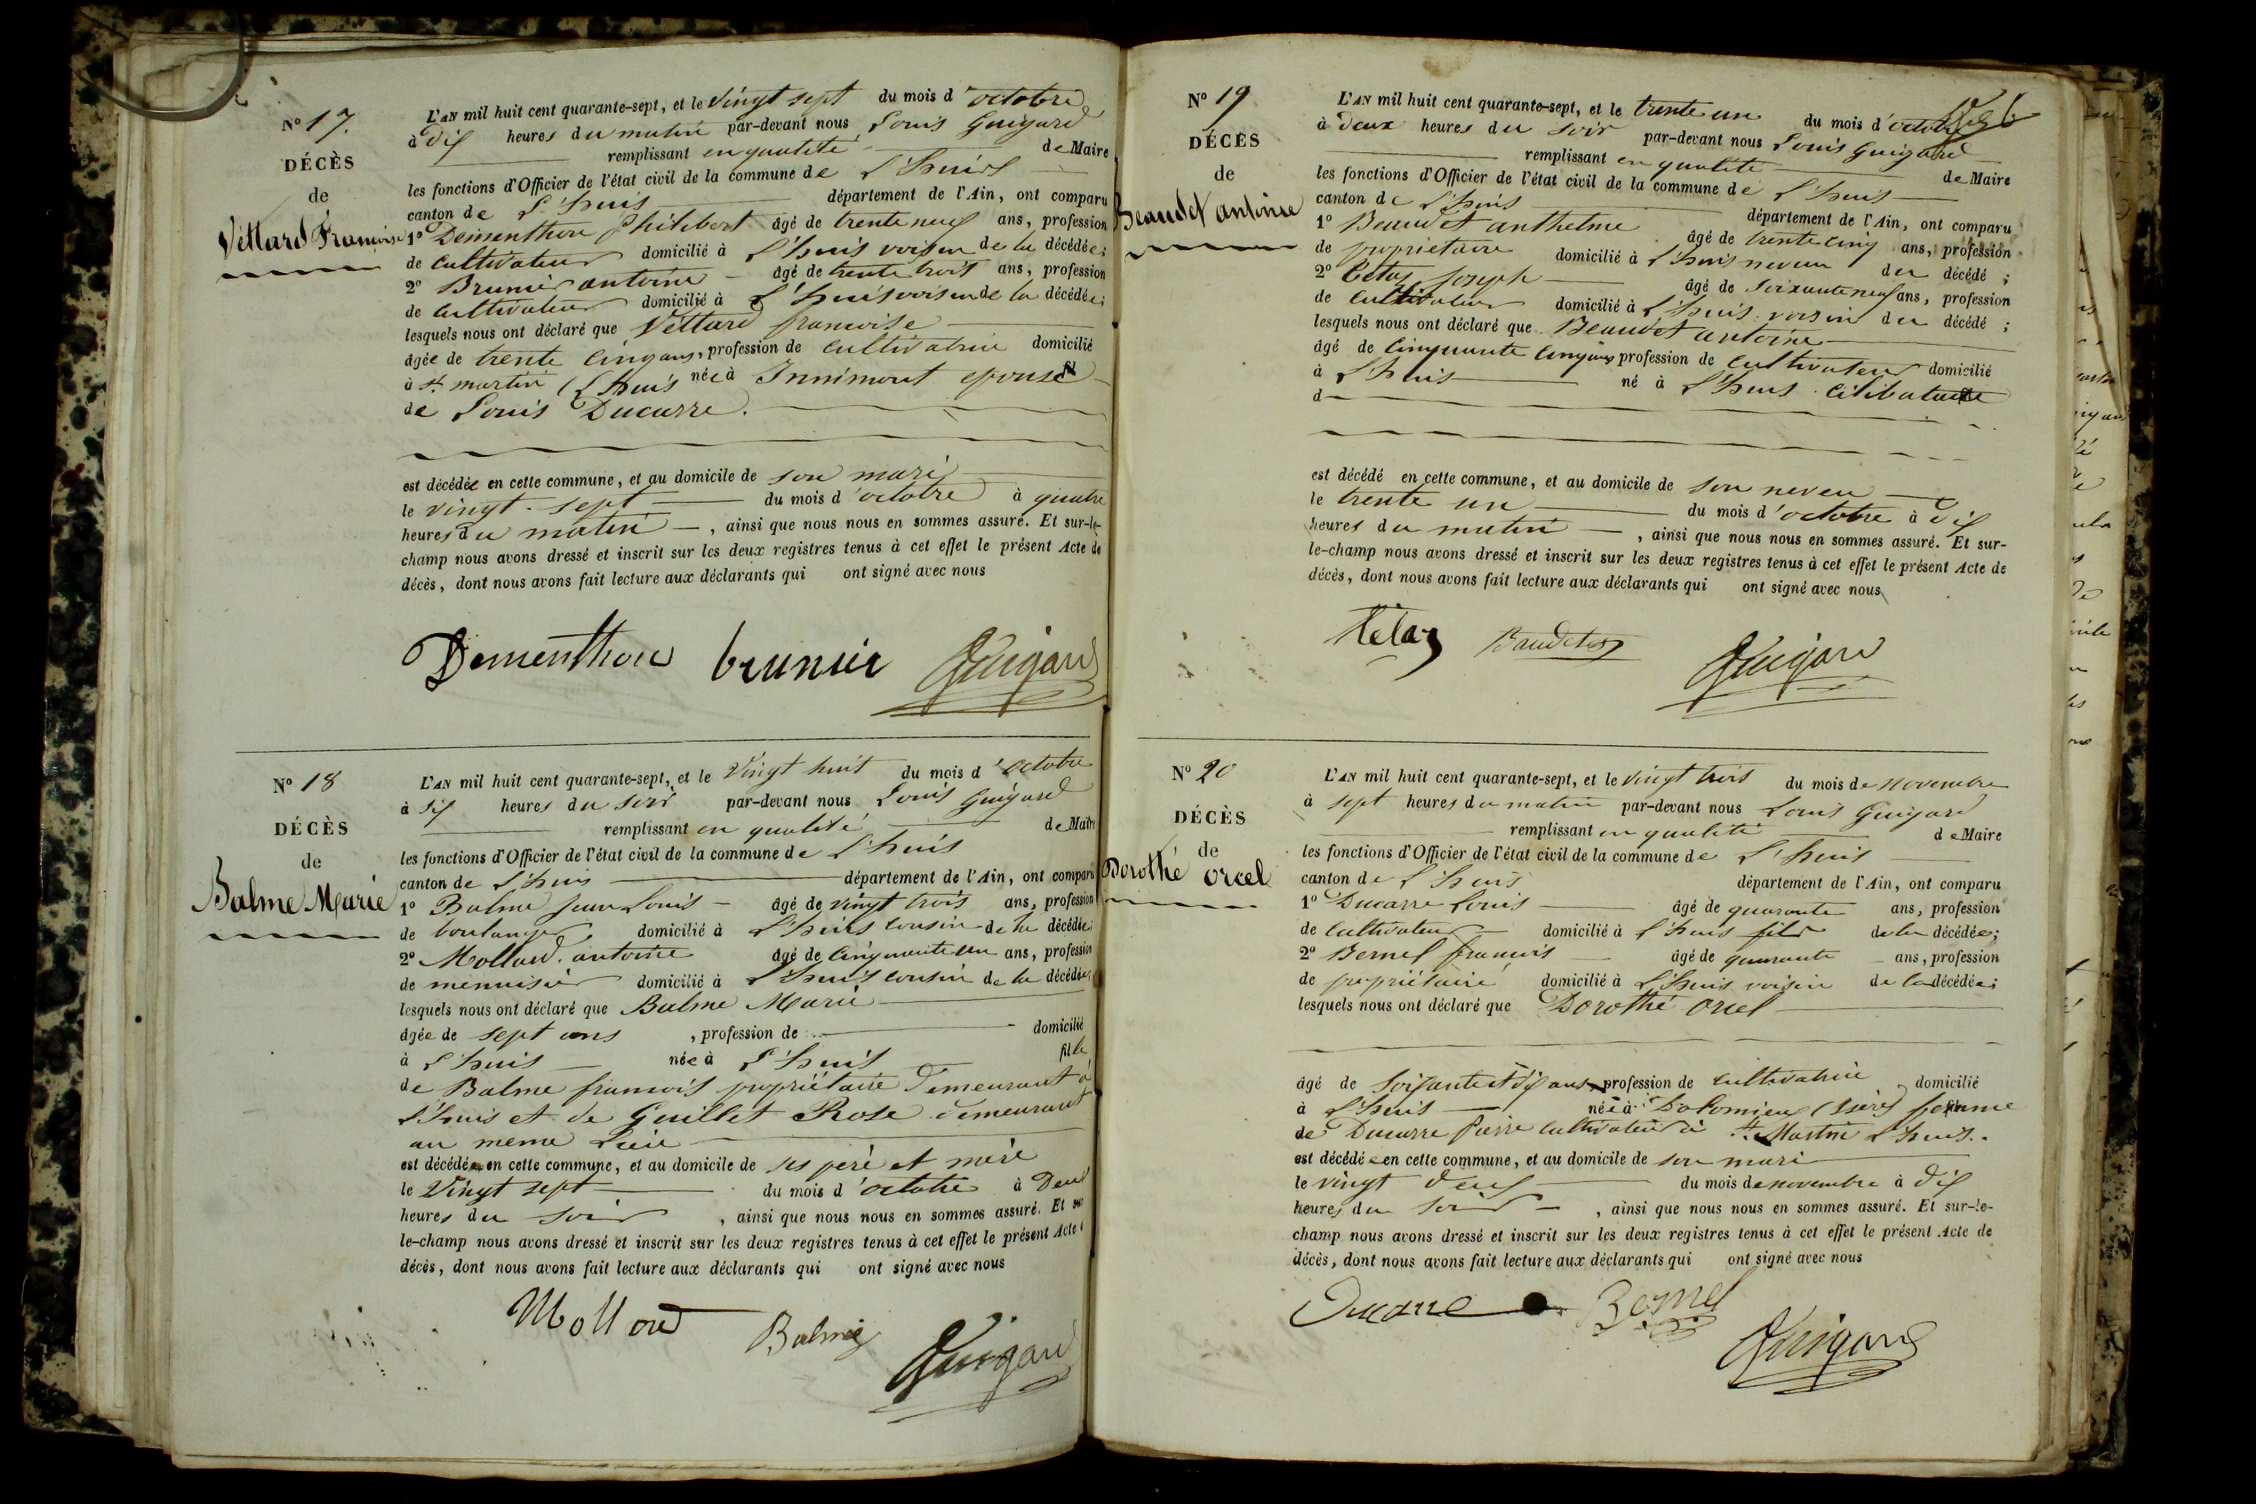 N° 17.
DÉCÈS
de
Vettard Francoise
L'AN mil huit cent quarante-sept, et le vingt sept du mois d'octobre
à dix heures du matin par-devant nous Louis Guigard
remplissant en qualité de Maire
les fonctions d'Officier de l'état civil de la commune de L'huis
canton de L'huis département de l'Ain, ont comparu
1° Dementhon Philibert âgé de trente neuf ans, profession
de cultivateur domicilié à L'huis voisin de la décédée;
2° Brunier antoine âgé de trente trois ans, profession
de cultivateur domicilié à L'huis voisin de la décédée;
lesquels nous ont déclaré que Vettard francoise
âgée de trente cinq ans, profession de cultivatrice domicilié
à st martin (L'huis née à Innimont epouse
de Louis Ducarre.
est décédée en cette commune, et au domicile de son mari
le vingt-sept du mois d'octobre à quatre
heures du matin, ainsi que nous nous en sommes assuré. Et sur-le-
champ nous avons dressé et inscrit sur les deux registres tenus à cet effet le présent Acte de
décès, dont nous avons fait lecture aux déclarants qui ont signé avec nous
Dementhon brunier Guigard
N° 18
DÉCÈS
de
Balme Marie
L'AN mil huit cent quarante-sept, et le vingt huit du mois d'octobre
à six heures du soir par-devant nous Louis Guigard
remplissant en qualité de Maire
les fonctions d'Officier de l'état civil de la commune de L'huis
canton de L'huis département de l'Ain, ont comparu
1° Balme jean Louis âgé de vingt trois ans, profession
de boulanger domicilié à L'huis cousin de la décédée;
2° Mollard antoine âgé de cinquante un ans, profession
de menuisier domicilié à L'huis cousin de la décédée;
lesquels nous ont déclaré que Balme Marie
âgée de sept ans, profession de domicilié
à L'huis née à L'huis fille
de Balme francois propriétaire demeurant à
L'huis et de Guillet Rose demeurant
au meme Lieu
est décédée en cette commune, et au domicile de ses père et mère
le vingt sept du mois d'octobre à Deux
heures du soir, ainsi que nous nous en sommes assuré. Et sur
le-champ nous avons dressé et inscrit sur les deux registres tenus à cet effet le présent Acte
décès, dont nous avons fait lecture aux déclarants qui ont signé avec nous
Mollard Balme Guigard
N° 19
DÉCÈS
de
Beaudet antoine
L'AN mil huit cent quarante-sept, et le trente un du mois d'octobre
à deux heures du soir par-devant nous Louis Guigard
remplissant en qualité de Maire
les fonctions d'Officier de l'état civil de la commune de L'huis
canton de L'huis département de l'Ain, ont comparu
1° Beaudet anthelme âgé de trente cinq ans, profession
de propriétaire domicilié à L'huis neveu du décédé;
2° Cétaz joseph âgé de soixante neuf ans, profession
de cultivateur domicilié à L'huis voisin du décédé;
lesquels nous ont déclaré que Beaudet antoine
âgé de cinquante cinq ans profession de cultivateur domicilié
à L'huis né à L'huis célibataire
d
est décédé en cette commune, et au domicile de son neveu
le trente un du mois d'octobre à dix
heures du matin, ainsi que nous nous en sommes assuré. Et sur-
le-champ nous avons dressé et inscrit sur les deux registres tenus à cet effet le présent Acte de
décès, dont nous avons fait lecture aux déclarants qui ont signé avec nous
Cétaz Baudet Guigard
N° 20
DÉCÈS
de
Dorothé orcel
L'AN mil huit cent quarante-sept, et le vingt trois du mois de novembre
à sept heures du matin par-devant nous Louis Guigard
remplissant en qualité de Maire
les fonctions d'Officier de l'état civil de la commune de L'huis
canton de L'huis département de l'Ain, ont comparu
1° Ducarre Louis âgé de quarante ans, profession
de cultivateur domicilié à L'huis fils de la décédée;
2° Bernel francois âgé de quarante ans, profession
de propriétaire domicilié à L'huis voisin de la décédée;
lesquels nous ont déclaré que Dorothé orcel
âgé de soixante et dix ans profession de cultivatrice domicilié
à L'huis née à Dolomieu (Isère) femme
de Ducarre Pierre cultivateur à St Martin L'huis.
est décédée en cette commune, et au domicile de son mari
le vingt deux du mois de novembre à dix
heures du soir, ainsi que nous nous en sommes assuré. Et sur-le-
champ nous avons dressé et inscrit sur les deux registres tenus à cet effet le présent Acte de
décès, dont nous avons fait lecture aux déclarants qui ont signé avec nous
Ducarre Bernel Guigard